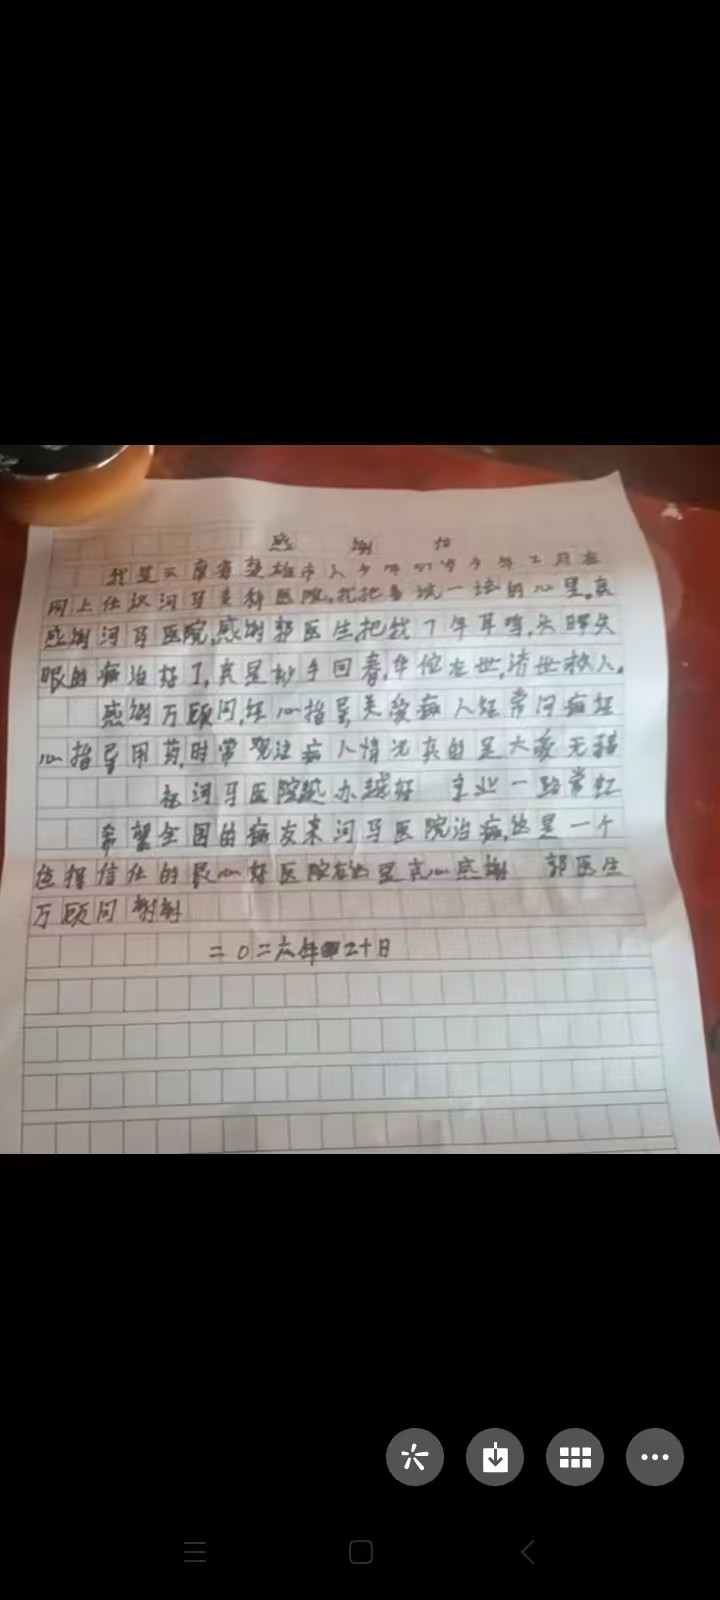 感谢信
我是云南省楚雄市人今年 岁今年二月在
网上仕识河马 科医院,我把 说一话的心里。真
感谢河马医院,感谢郭医生把我7年耳鸣,头晕失
眠的病治好了,真是妙手回春,华佗在世,济世救人。
感谢万顾问,红心指导,关爱病人经常问病
心指导用药,时常观注病人情况真的是大爱无
祝河马医院越办越好 业一路常虹
希望全国的病友来河马医院治病,这是一个
值得信任的良心好医院在这里衷心感谢 郭医生
万顾问 谢谢
二0二六年 二十日